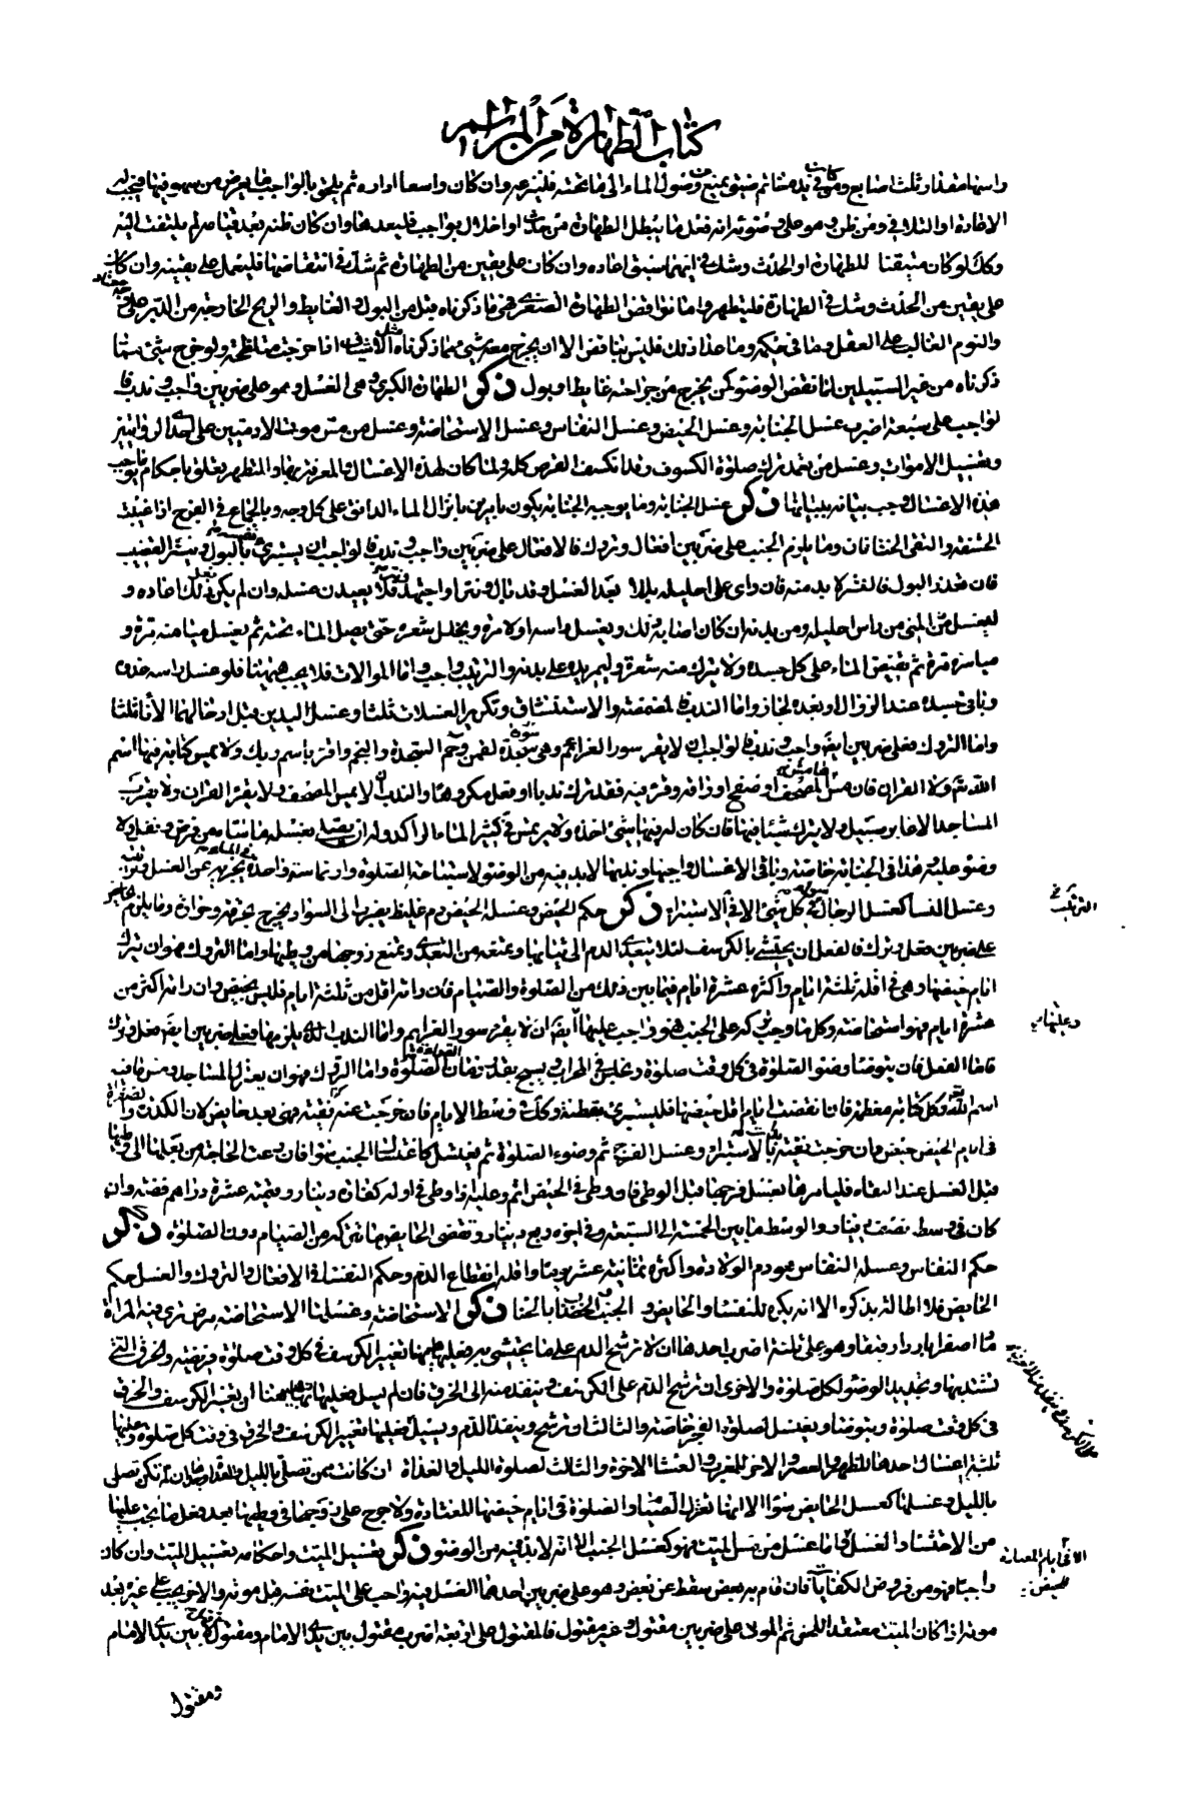 كتاب الطهارة من المراسم
واسها مقدار ثلث اصابع ومن كان في يده خاتم ضيق يمنع من وصول الماء الى ما تحته فلينزعه وان كان واسعا اداره ثم يلحق بالواجب ما يعرض من سهو فيها فيجب له
الاعادة او التلافي ومن ظن وهو على وضوئه انه فعل ما يبطل الطهارة من حدث او اخلال بواجب فليعد هنا وان كان ظنه بعد قيامه لم يلتفت اليه
وكذلك لو كان متيقنا للطهارة او الحدث وشك في ايهما سبق اعاده وان كان على يقين من الطهارة ثم شك في انتقاضها فليعمل على يقينه وان كان
على يقين من الحدث وشك في الطهارة فليتطهر واما نواقض الطهارة الصغرى فهي ما ذكرناه قبل من البول والغايط والريح الخارجة من الدبر على
والنوم الغالب على العقل وما في حكمه وما عدا ذلك فليس بناقض الا ان يخرج معه شيء مما ذكرناه مثل الاشياف اذا خرجت متلطخة ولو خرج شيء مما
ذكرناه من غير السبيلين لما نقض الوضوء كمن يخرج من جراحته غايط او بول ذكر الطهارة الكبرى وهي الغسل وهو على ضربين واجب وندب فا
لواجب على سبعة اضرب غسل الجنابة وغسل الحيض وغسل النفاس وغسل الاستحاضة وغسل من مس موتى الادميين على احدى الروايتين
وتغسيل الاموات وغسل من تعمد ترك صلوة الكسوف وقد انكسف القرص كله ولما كان لهذه الاغسال والمعرفة بها والمتطهر تعلق باحكام ما يوجب
هذه الاغسال وجب بيانه ببيانها ذكر غسل الجنابة وما يوجبه الجنابة يكون بامرين بانزال الماء الدافق على كل وجه وبالجماع في الفرج اذا غيبت
الحشفة والتقى الختانان وما يلزم الجنب على ضربين افعال وتروك فالافعال على ضربين واجب وندب فالواجب ان يستبرئ نفسه بالبول وينتر القضيب
فان تعذر البول فالنتر لا بد منه فان راى على احليله بللا بعد الغسل وقد بال ونتر او اجتهد فلا يعيدن غسله وان لم يكن فعل ذلك اعاده و
ليغسل المني من راس احليله ومن بدنه ان كان اصابه ذلك ويغسل راسه اولا مرة ويخلل شعره حتى يصل الماء تحته ثم يغسل ميامنه مرة و
مياسره مرة ثم يفيض الماء على كل جسده ولا يترك منه شعرة وليمر يده على بدنه والترتيب واجب واما الموالات فلا يجب هيهنا فلو غسل راسه غدوة
وباقي جسده عند الزوال او بعده لجاز واما الندب فالمضمضة والاستنشاق وتكرير الغسلات ثلثا وغسل اليدين قبل ادخالهما الاناء ثلثا
واما التروك فعلى ضربين ايضا واجب وندب فالواجب ان لا يقرء سور العزائم وهي سورة سجدة لقمن وحم السجدة والنجم واقرء باسم ربك ولا يمس كتابة فيها اسم
الله تع ولا القران فان مس هامش المصحف او صفح اوراقه وقرء فيه فقد ترك ندبا او فعل مكروها والندب ان لا يمس المصحف ولا يقرء القران ولا يقرب
المساجد الا عابر سبيل ولا يترك شيئا فيها فان كان له فيها شيء اخذه ولا يرتمس في كثير الماء الراكد وله ان يصلي بغسله ما شاء من فرض ونفل ولا
وضوء عليه هذا في الجنابة خاصة وباقي الاغسال واجبها وندبها لا بد فيه من الوضوء لاستباحة الصلوة وارتماسة واحدة في الماء تجزيه عن الغسل وترتيبه
وغسل النساء كغسل الرجال سواء في كل شيء الا في الاستبراء ذكر حكم الحيض وغسله الحيض دم غليظ يضرب الى السواد يخرج بحرقة وحرارة وما يلزم الحايض
على ضربين فعل وترك فالفعل ان يحتشي بالكرسف لئلا يتعدى الدم الى ثيابها ويمنعه من التعدي وتمنع زوجها من وطيها واما التروك فهو ان تترك
ايام حيضها وهي في اقله ثلثة ايام واكثره عشرة ايام فيما بين ذلك من الصلوة والصيام فان راته اقل من ثلثة ايام فليس بحيض وان راته اكثر من
عشرة ايام فهو استحاضة وكل ما وجب تركه على الجنب فهو واجب عليها ايضا ان لا يقرء سور العزايم واما الندب الذي يلزمها فعلى ضربين ايضا فعل وترك
فاما الفعل فان يتوضا وضوء الصلوة في كل وقت صلوة وتجلس في المحراب يسبح بقدر زمان الصلوة واما التروك فهو ان يعتزل المساجد ومس ما فيه
اسم الله وكل كتابة معظمة فان انقضت ايام اقل حيضها فليستبرئ بقطنة وكذلك وسط الايام فان خرجت غير نقية فهي بعد حايض لان الكدرة والصفرة
في ايام الحيض حيض وان خرجت نقية بادرت بالاستبراء وغسل الفرج ثم وضوء الصلوة ثم يغتسل كاغتسال الجنب سواء فان دعت الحاجة من بعلها الى وطيها
قبل الغسل عند النقاء فليامرها بغسل فرجها قبل الوطي فان وطئ في الحيض اثم وعليه اذا وطئ في اوله كفارة دينار وقيمته عشرة دراهم فضة وان
كان في وسطه نصف دينار والوسط ما بين الخمسة الى السبعة وفي اخره ربع دينار وتقضى الحايض ما تركه من الصيام دون الصلوة ذكر
حكم النفاس وغسله النفاس هو دم الولادة واكثره ثمانية عشر يوما واقله انقطاع الدم وحكم النفساء في الافعال والتروك والغسل حكم
الحايض فلا اطالة بذكره الا انه يكره للنفساء والحايض والجنب الخضاب بالحناء ذكر الاستحاضة وغسلها الاستحاضة مرض ترى فيه المراة
دما اصفر باردا رقيقا وهو على ثلثة اضرب احدها ان لا ترشح الدم على ما يحتشي به فعليها هيهنا تغيير الكرسف في كل وقت صلوة فريضة والخرق التي
تشتد بها وتجديد الوضوء لكل صلوة والاخرى ان ترشح الدم على الكرسف وينفذ منه الى الخرق فان لم يسل فعليها هيهنا ان تغير الكرسف والخرق
في كل وقت صلوة ويتوضا ويغتسل لصلوة الفجر خاصة والثالثة ان ترشح وينفذ الدم ويسيل فعليها تغيير الكرسف والخرق في وقت كل صلوة وعليها
ثلثة اغسال احدها للظهر والعصر والاخر للمغرب والعشاء الاخرة والثالث لصلوة الليل والغداة ان كانت ممن تصلي بالليل وللغداة خاصة ان لم تكن تصلي
بالليل وغسلها كغسل الحايض سواء الا انها تعزل الصيام والصلوة في ايام حيضها المعتادة ولا حرج على زوجها في وطيها بعد فعل ما يجب عليها
من الاحتشاء والغسل فاما غسل من مس الميت فهو كغسل الجنب الا انه لا بد فيه من الوضوء ذكر تغسيل الميت واحكامه تغسيل الميت وان كان
واجبا فهو من فروض الكفايات فان قام به بعض سقط عن بعض وهو على ضربين احدهما الغسل فيه واجب على الميت نفسه قبل موته والاخر يجب على غيره بعد
موته اذا كان الميت معتقدا للحق ثم الموتى على ضربين مقتول وغير مقتول فالمقتول على اربعة اضرب مقتول بين يدي الامام ومقتول لا بين يدي الامام
ومقتول
الترتيب خ
وعليها
الا في ايام المعتادة
للحيض